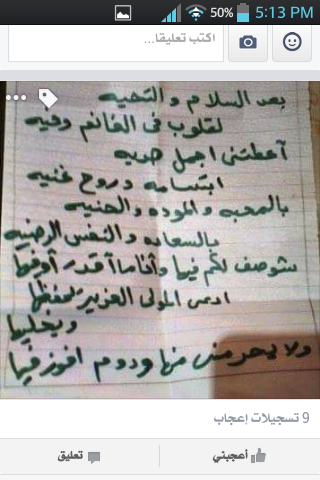 50% 5:13 PM
اكتب تعليقا...
بعد السلام والتحيه
لقلوب في الغانم وفيه
أعطتني اجمل هديه
ابتسامه وروح غنيه
بالمحبه والموده والحنيه
بالسعاده والنفس الرضيه
شوصف لكم فيها وأناما أقدر أوفيها
ادعي المولى العزيز يحفظها
ويخليها
ولا يحرمني منها ودوم افوز فيها
9 تسجيلات إعجاب
أعجبني
تعليق